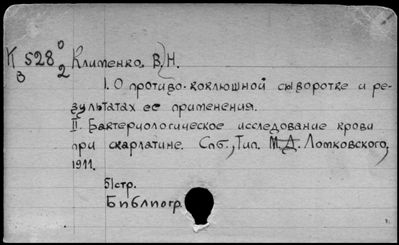 К 528 0 Клименко, В.Н.
В 2
I. О противо-коклюшной сыворотке и ре-
зультатах ее применения.
II. Бактериологическое исследование крови
при скарлатине. Спб., Тип. М.Д. Ломковского,
1911.
51стр.
Библиогр.